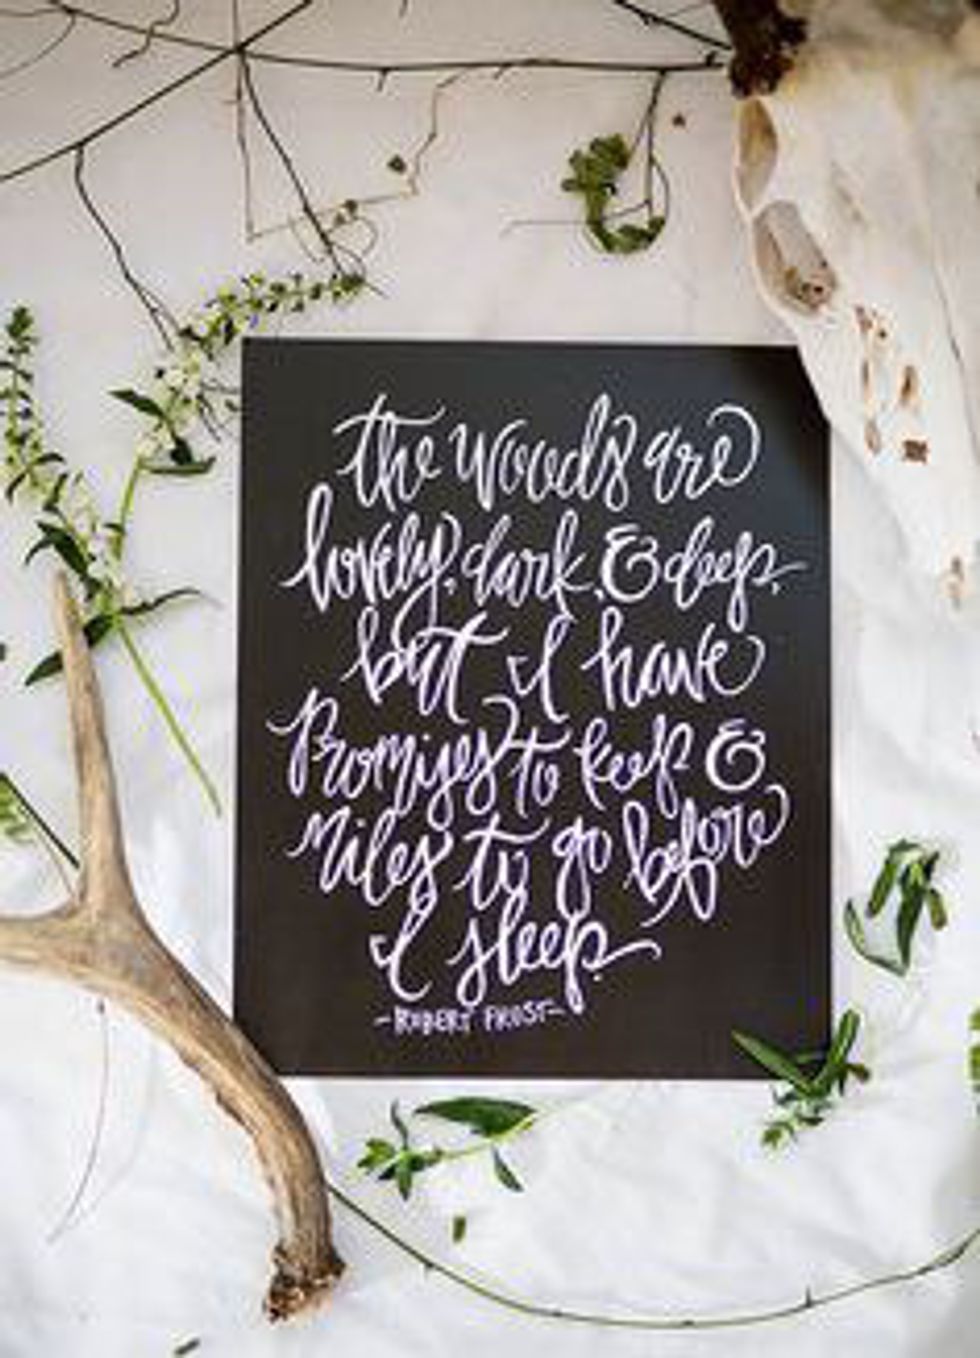 the woods are
lovely, dark, & deep,
but I have
Promises to keep &
Miles to go before
I sleep.
-ROBERT FROST-